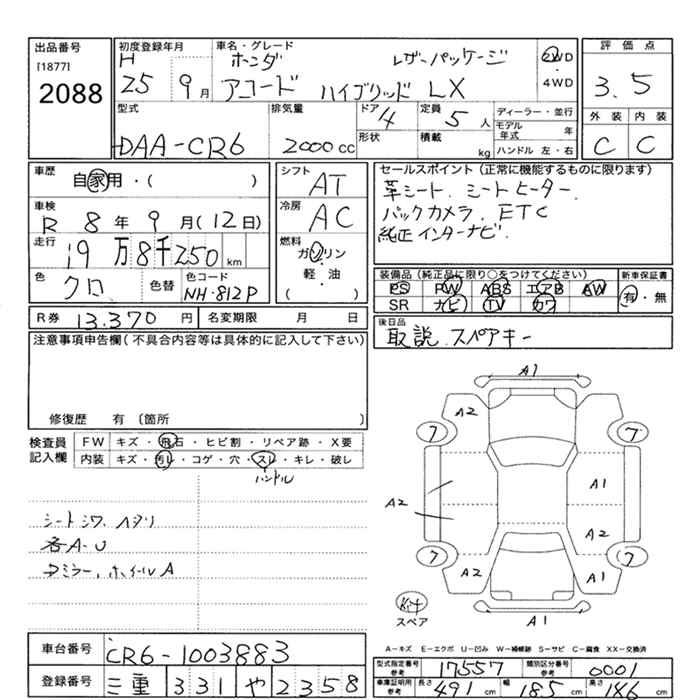 出品番号
[1877]
2088
初度登録年月
H 25 9月
車名・グレード
ホンダ レザーパッケージ
アコード ハイブリッド LX
2WD
・
4WD
評価点
3.5
外装 内装
C C
型式
DAA-CR6
排気量
2000cc
ドア
4
形状
定員
5人
積載
kg
ディーラー・並行
モデル年式 年
ハンドル 左・右
車歴
自家用・( )
車検
R 8年 9月(12日)
走行
19万8千250km
色
クロ
色替
色コード
NH-812P
シフト
AT
冷房
AC
燃料
ガソリン
軽・油
( )
セールスポイント(正常に機能するものに限ります)
革シート.シートヒーター.
バックカメラ.ETC
純正インターナビ.
装備品(純正品に限り○をつけてください)
PS PW ABS エアB AW
SR ナビ TV カワ
新車保証書
有・無
R券 13.370円
名変期限 月 日
後日品
取説.スペアキー
注意事項申告欄(不具合内容等は具体的に記入して下さい)
修復歴 有〔箇所 〕
検査員
記入欄
FW キズ・飛石・ヒビ割・リペア跡・X要
内装 キズ・汚レ・コゲ・穴・スレ・キレ・破レ
ハンドル
シートシワ.ヘタリ
各A-U
ドミラー.ホイールA
A1
A2
7 7
A1
A2
A2
7 7
A2 A1
A1
Kit
スペア
A-キズ E-エクボ U-凹み W-補修跡 S-サビ C-腐食 XX-交換済
車台番号
CR6-1003883
登録番号
三重 331 や 2358
型式指定番号
参考
17557
類別区分番号
参考
0001
車庫証明用
参考
長さ 491cm 幅 185cm 高さ 146cm